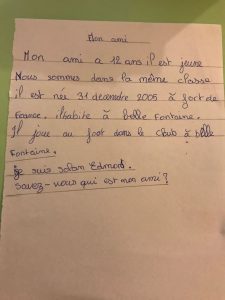 Mon ami
Mon ami a 12 ans il est jeune
Nous sommes dans la même classe
il est née 31 décembre 2005 à fort de
France. il habite à belle Fontaine.
Il joue au foot dans le club à belle
Fontaine.
Je suis Edmond.
Savez-vous qui est mon ami?